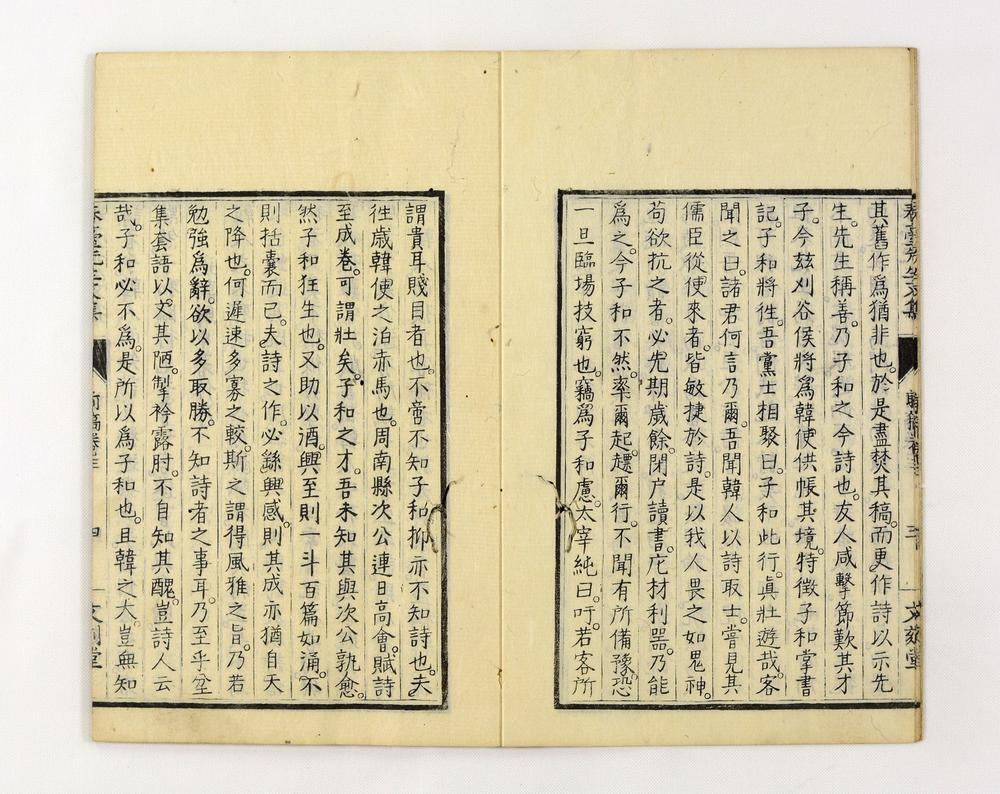 其舊作爲猶非也。於是盡焚其稿。而更作詩以示先
生。先生稱善。乃子和之今詩也。友人咸擊節歎其才
子。今茲刈谷侯將爲韓使供帳其境。特徵子和掌書
記。子和將徃。吾黨士相聚曰。子和此行。眞壯遊哉。客
聞之曰。諸君何言乃爾。吾聞韓人以詩取士。嘗見其
儒臣從使來者。皆敏捷於詩。是以我人畏之如鬼神。
苟欲抗之者。必先期歲餘。閉户讀書。庀材利器。乃能
爲之。今子和不然。率爾起。趯爾行。不聞有所備豫。恐
一旦臨場技窮也。竊爲子和慮。太宰純曰。吁。若客所
謂貴耳賤目者也。不啻不知子和。抑亦不知詩也。夫
徃歲韓使之泊赤馬也。周南縣次公連日高會。賦詩
至成卷。可謂壯矣。子和之才。吾未知其與次公孰愈。
然子和狂生也。又助以酒。興至則一斗百篇如涌。不
則括囊而已。夫詩之作。必繇興感。則其成亦猶自天
之降也。何遲速多寡之較。斯之謂得風雅之旨。乃若
勉強爲辭。欲以多取勝。不知詩者之事耳。乃至乎坌
集套語以文其陋。掣衿露肘。不自知其醜。豈詩人云
哉。子和必不爲是。所以爲子和也。且韓之大。豈無知